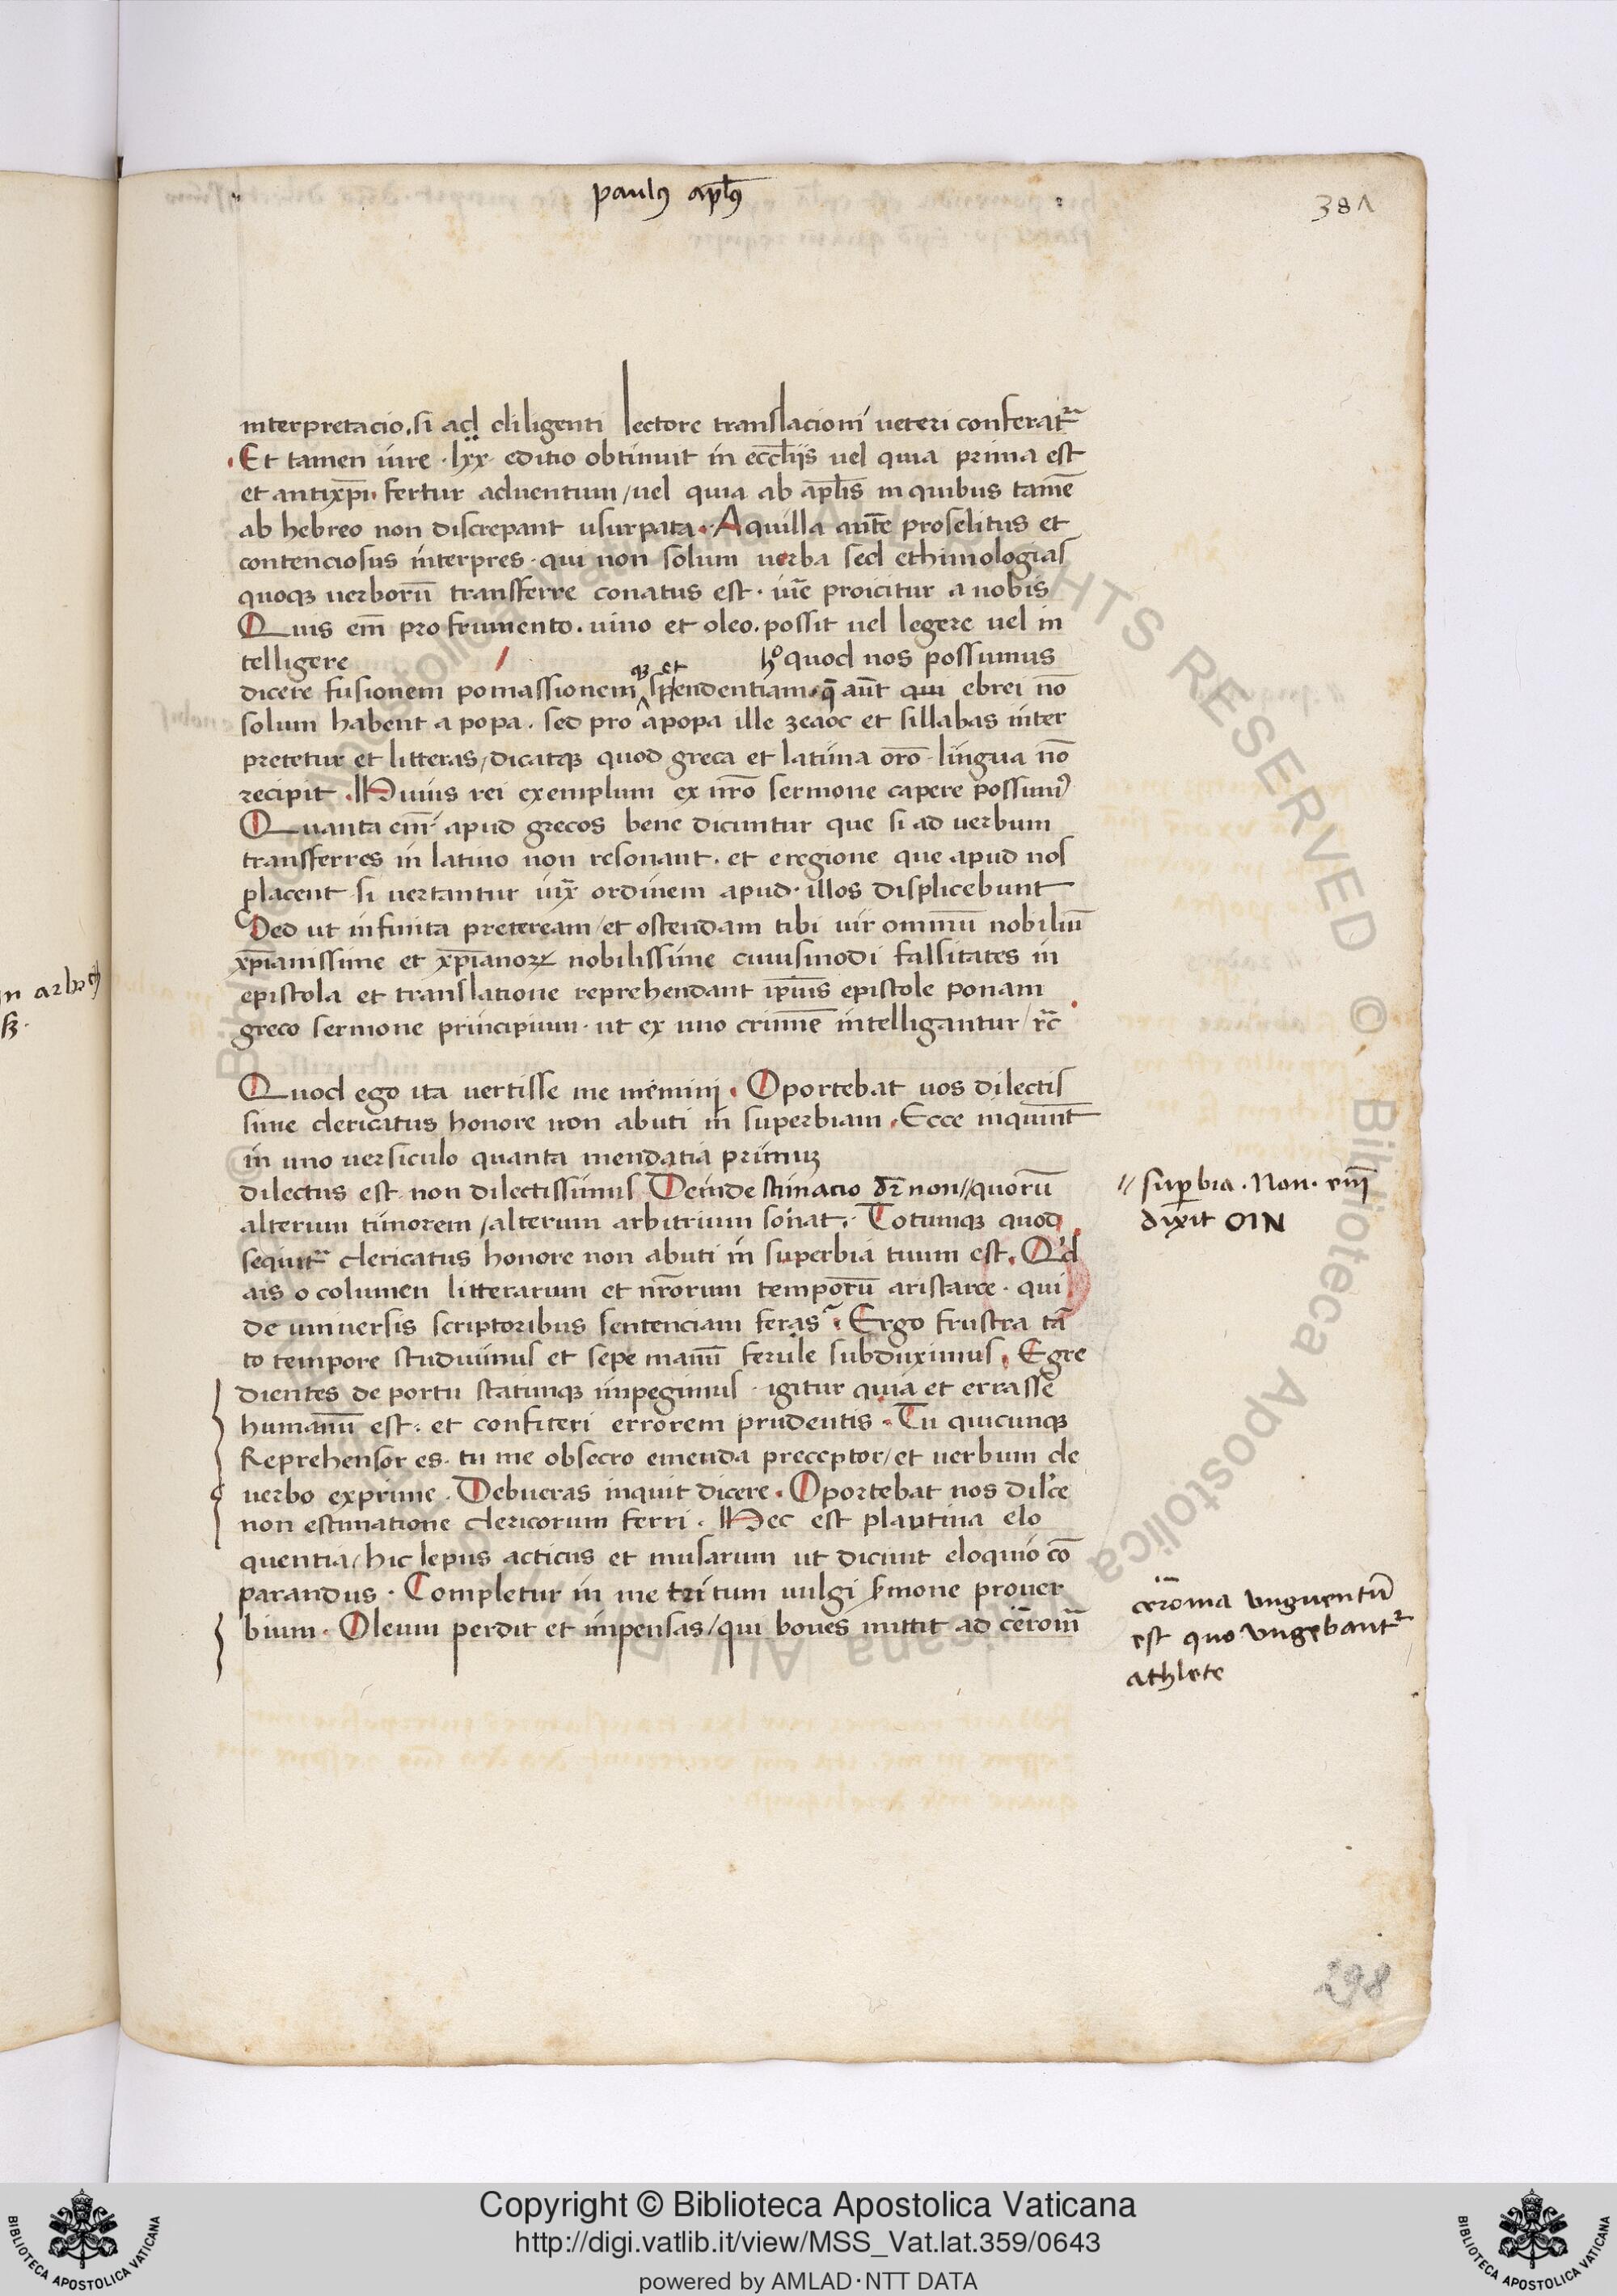 paulꝰ apl̄ꝰ
381
interpretacio. si ad diligenti lectore translacioni ueteri conferat᷑
Et tamen iure · lxx · editio obtinuit in eccl̄iis uel quia prima est
et antixp̄i fertur aduentum / uel quia ab apl̄is in quibus tamē
ab hebreo non discrepant usurpata. Aquilla aut̄e proselitus et
contenciosus interpres · qui non solum uerba sed ethimologias
quoqꝫ uerborū transferre conatus est · iur̄e proicitur a nobis
Quis em̄ pro frumento. uino et oleo. possit uel legere uel in
telligere hͦ quod nos possumus
qꝫ et
dicere fusionem pomassionem spendentiam. q̄ aūt qui ebrei nō
solum habent a popa. sed pro apopa ille zeaoc et sillabas inter
pretetur et litteras / dicatqꝫ quod greca et latina or̄o lingua nō
recipit. Huius rei exemplum ex nr̄o sermone capere possumꝰ
Quanta em̄ apud grecos bene dicuntur que si ad uerbum
transferres in latino non resonant. et eregione que apud nos
placent si uertantur iux̄ ordinem apud illos displicebunt
Sed ut infinita preteream / et ostendam tibi uir omniū nobiliū
xp̄ianissime et xp̄ianoꝝ nobilissime cuiusmodi falsitates in
epistola et translatione reprehendant ip̄ius epistole ponam
greco sermone principium · ut ex uno crimīe intelligantur / rc̄
Quod ego ita uertisse me memini. Oportebat uos dilectis
sime clericatus honore non abuti in superbiam. Ecce inquiunt
in uno uersiculo quanta mendatia primuꝫ
dilectus est non dilectissimus Deinde stimacio dr̄ non // quorū
alterum timorem / alterum arbitrium sonat. Totumqꝫ quod
sequit᷑ clericatus honore non abuti in superbia tuum est. Qͥd
ais o columen litterarum et nr̄orum temporū aristarce · qui
de uniuersis scriptoribus sentenciam feras. Ergo frustra tā
to tempore studuimus et sepe manū ferule subduximus. Egre
dientes de portu statimqꝫ impegimus · igitur quia et errasse
humanū est. et confiteri errorem prudentis. Tu quicunqꝫ
Reprehensor es. tu me obsecro emenda preceptor / et uerbum de
uerbo exprime. Debueras inquit dicere. Oportebat nos dil̄ce
non estimatione clericorum ferri. Hec est plautina elo
quentia / hic lepus acticus et musarum ut dicunt eloquio cō
parandus. Completur in me tritum uulgi ẜmone prouer
bium. Oleum perdit et impensas / qui boues mittit ad cerom̄
// suꝑbia. Non. em̄
dixit OIN
ceroma unguentū
est quo ungebant᷑
athlete
298
Copyright © Biblioteca Apostolica Vaticana
http://digi.vatlib.it/view/MSS_Vat.lat.359/0643
powered by AMLAD·NTT DATA